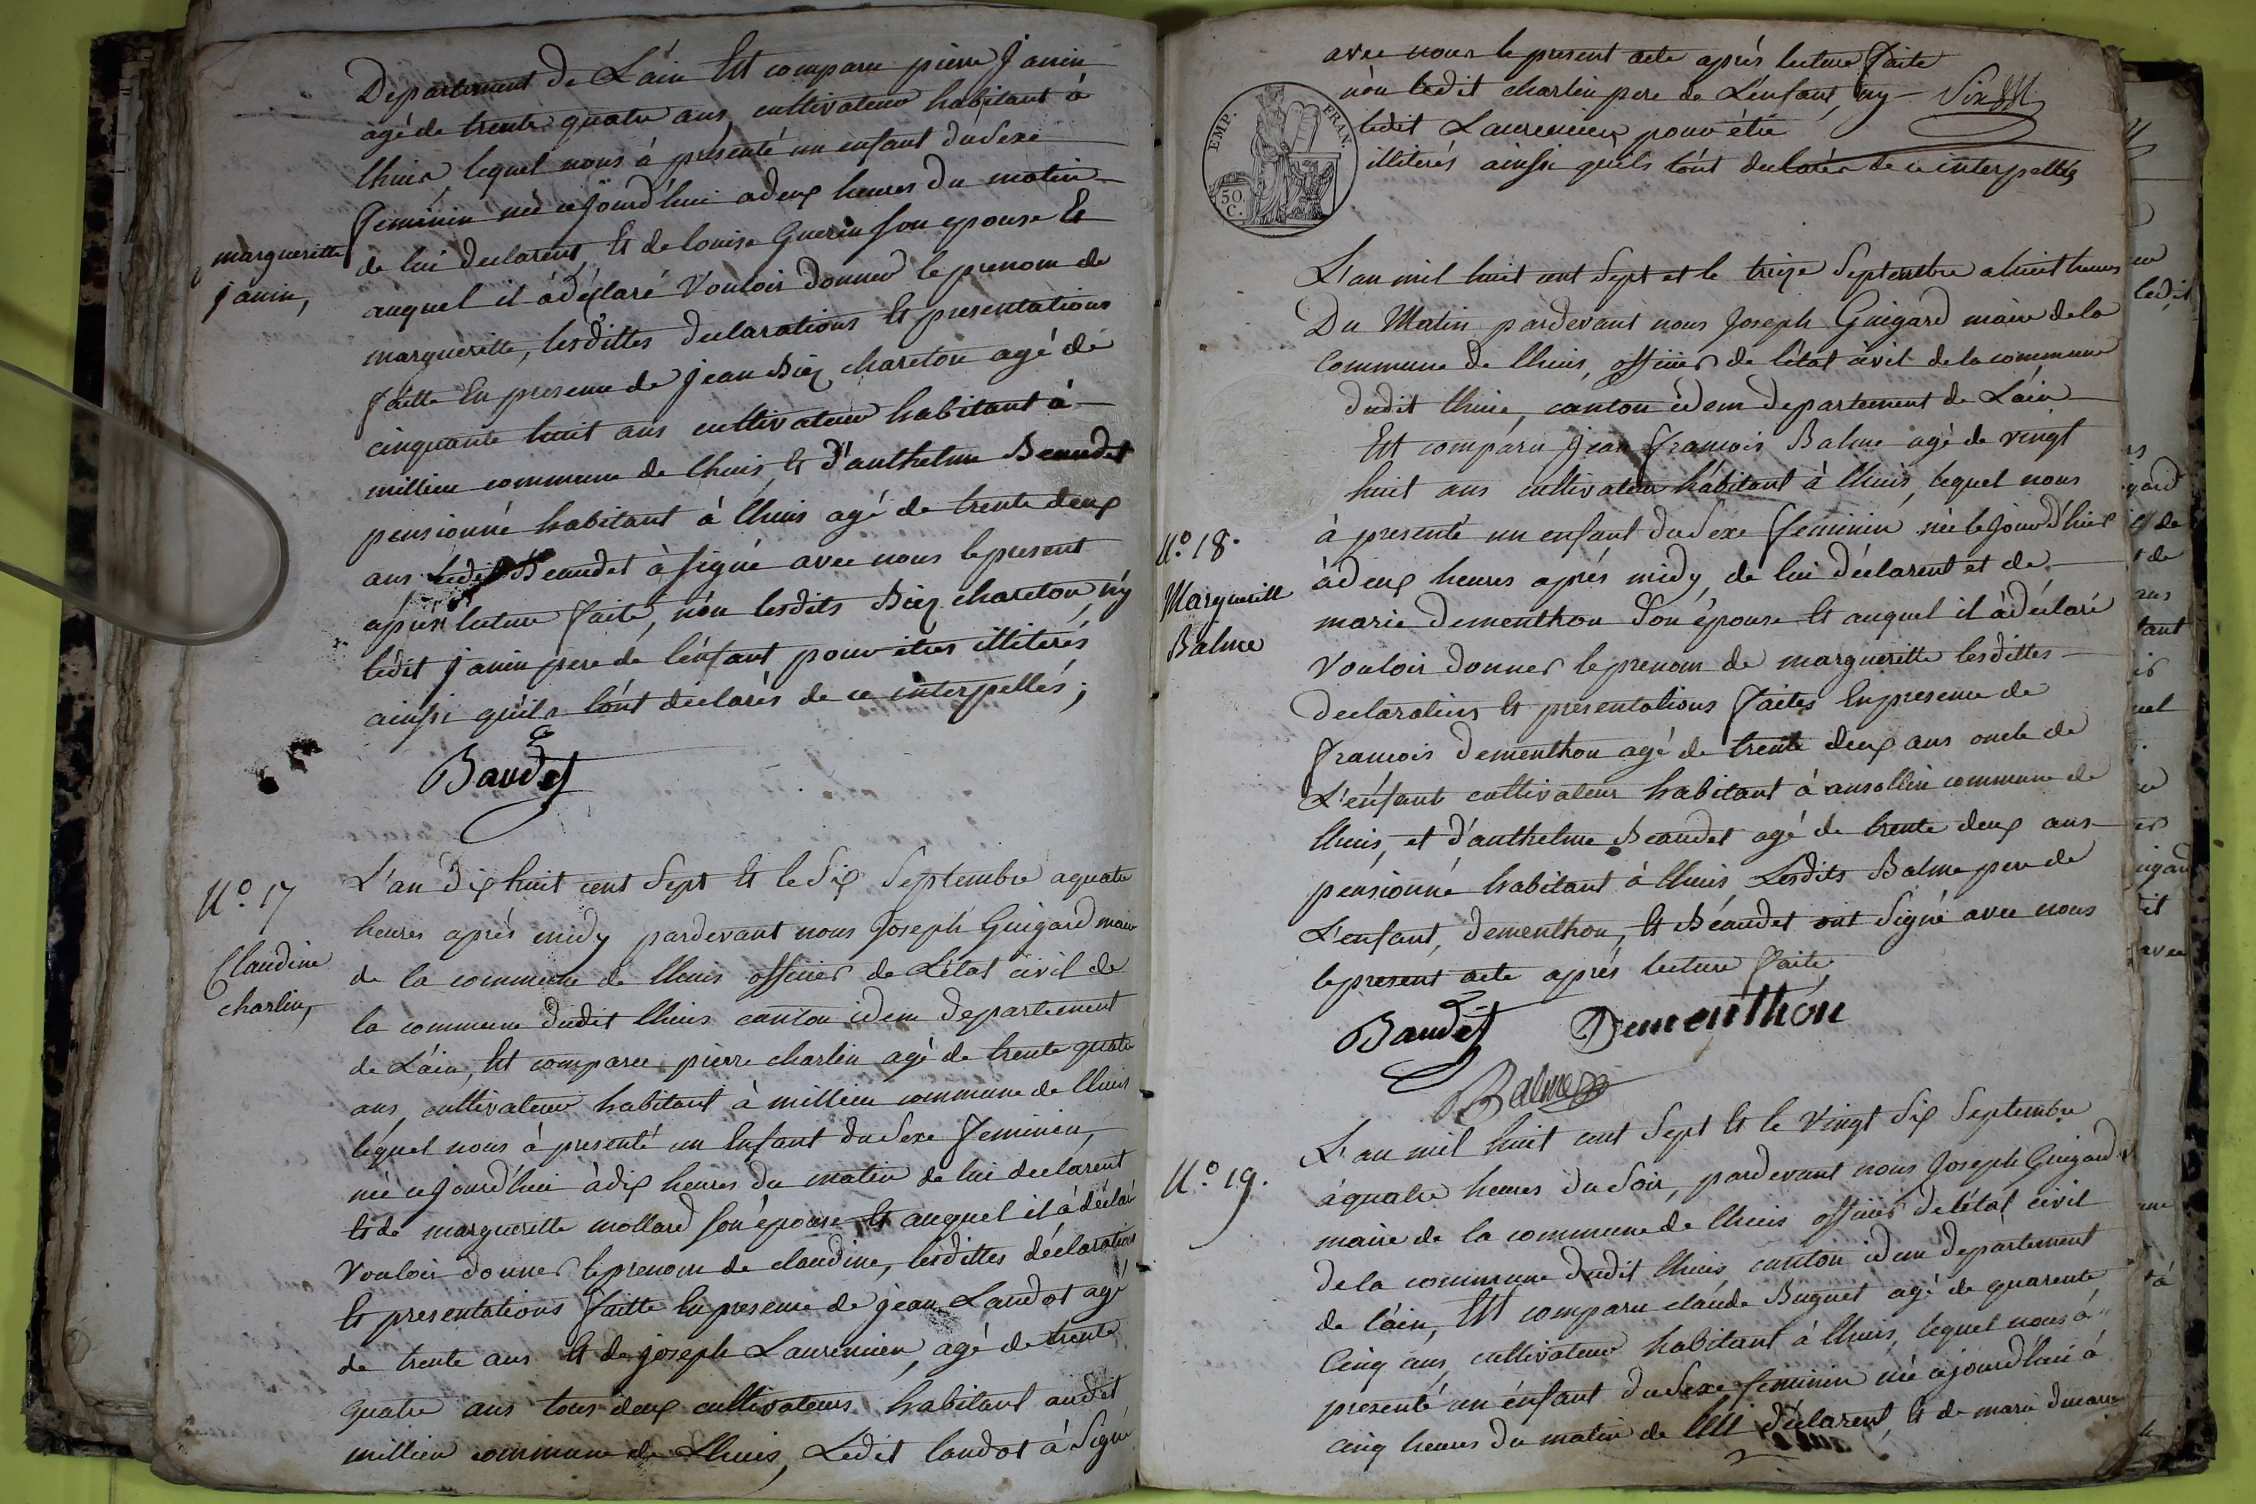 Departement de L'ain Est comparu pierre Janin
agé de trente quatre ans, cultivateur habitant à
lhuis, lequel nous à présenté un enfant du Sexe
feminin née cejourd'hui a deux heures du matin
de lui declarent, Et de louise Guerin son epouse Et
auquel il à déclaré Vouloir donner le prenom de
margueritte, lesdittes declarations Et presentations
faitte En presence de jean Biez chareton agé de
cinquante huit ans cultivateur habitant à
millieu commune de lhuis, Et d'anthelme Beaudet
pensionné habitant à lhuis agé de trente deux
ans Ledit Beaudet à signé avec nous le present
après lecture faite, nôn lesdits Biez chareton ny
ledit Janin pere de l'énfant pour étres illiterés
ainsi qu'ils l'ont déclarés de ce interpellés;
margueritte
Janin,
Baudet
N.o 17
Claudine
charlin,
L'an dix huit cent Sept Et le Six Septembre a quatre
heures après midy pardevant nous Joseph Guigard maire
de la commune de lhuis officier de L'état civil de
la commune dudit lhuis canton idem departement
de L'ain, Est comparu pierre charlin agé de trente quatre
ans, cultivateur habitant à millieu commune de lhuis
lequel nous à presenté un Enfant du Sexe feminin,
née cejourd'hui à dix heures du matin de lui declarent
Et de margueritte mollard son épouse Et auquel il à déclaré
Vouloir donner le prenom de claudine, lesdittes déclarations
Et presentations faitte En presence de jean Landot agé
de trente ans Et de joseph Laurencien, agé de trente
quatre ans tous deux cultivateurs habitant audit
millieu commune de Lhuis, Ledit landot à Signé
avec nous le present acte après lecture faite
nôn ledit charlin pere de L'énfant, ny
ledit Laurencien pour étre
illiterés ainsi qu'ils l'ont declarés de ce interpellés
EMP. FRAN.
50 C.
L'an mil huit cent Sept et le treize Septembre a huit heures
Du Matin pardevant nous Joseph Guigard maire de la
Commune de lhuis, officier de l'état civil de la commune
dudit lhuis, canton idem departement de L'ain
Est comparu Jean françois Balme agé de vingt
huit ans cultivateur habitant à lhuis, lequel nous
à presenté un enfant du Sexe feminin née le jour d'hier
à deux heures après midy, de lui déclarent et de
marie dementhon Son épouse Et auquel il à déclaré
Vouloir donner le prenom de margueritte lesdittes
declarations Et présentations faites En presence de
françois dementhon agé de trente deux ans oncle de
L'énfant cultivateur habitant à ansollin commune de
lhuis, et d'anthelme Beaudet agé de trente deux ans
pensionné habitant à lhuis Lesdits Balme pere de
L'enfant, dementhon, Et Béaudet ont Signé avec nous
le present acte après lecture faite
N.o 18.
Margueritte
Balme
Baudet Dementhon
Balme
N.o 19.
L'an mil huit cent Sept Et le Vingt Six Septembre
à quatre heures du Soir, pardevant nous Joseph Guigard
maire de la commune de lhuis officier de l'état civil
de la commune dudit lhuis canton idem département
de l'ain, Est comparu claude Buguet agé de quarente
Cinq ans, cultivateur habitant à lhuis, lequel nous à
presenté un énfant du Sexe feminin née cejourd'hui à
cinq heures du matin de lui déclarent, Et de marie